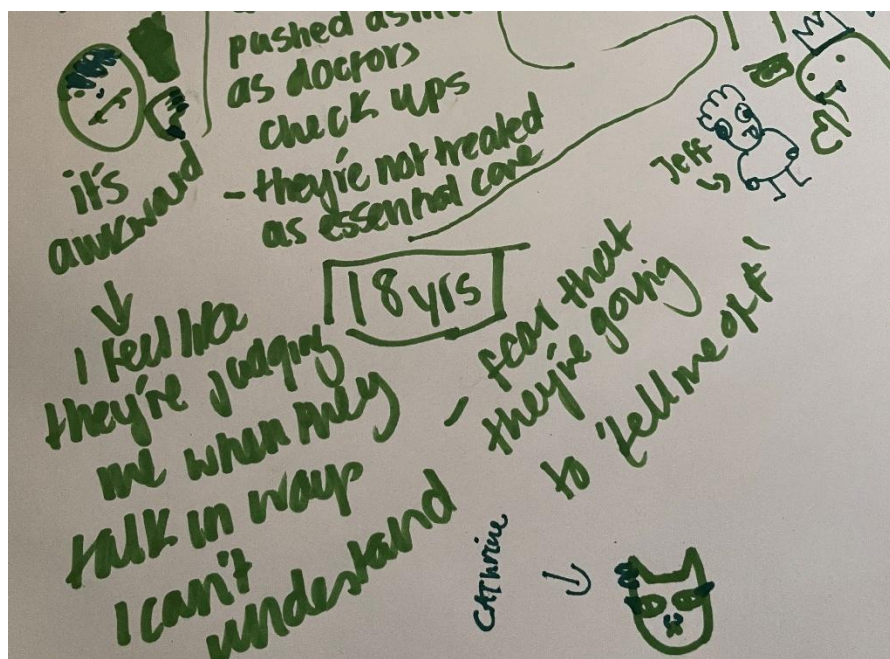 pushed as
as doctors
check ups
- they're not treated
as essential care
it's
awkward
18 yrs
I feel like
they're judging
me when they
talk in ways
I can't
understand
- fear that
they're going
to 'tell me off'
Jeff
CAThrine